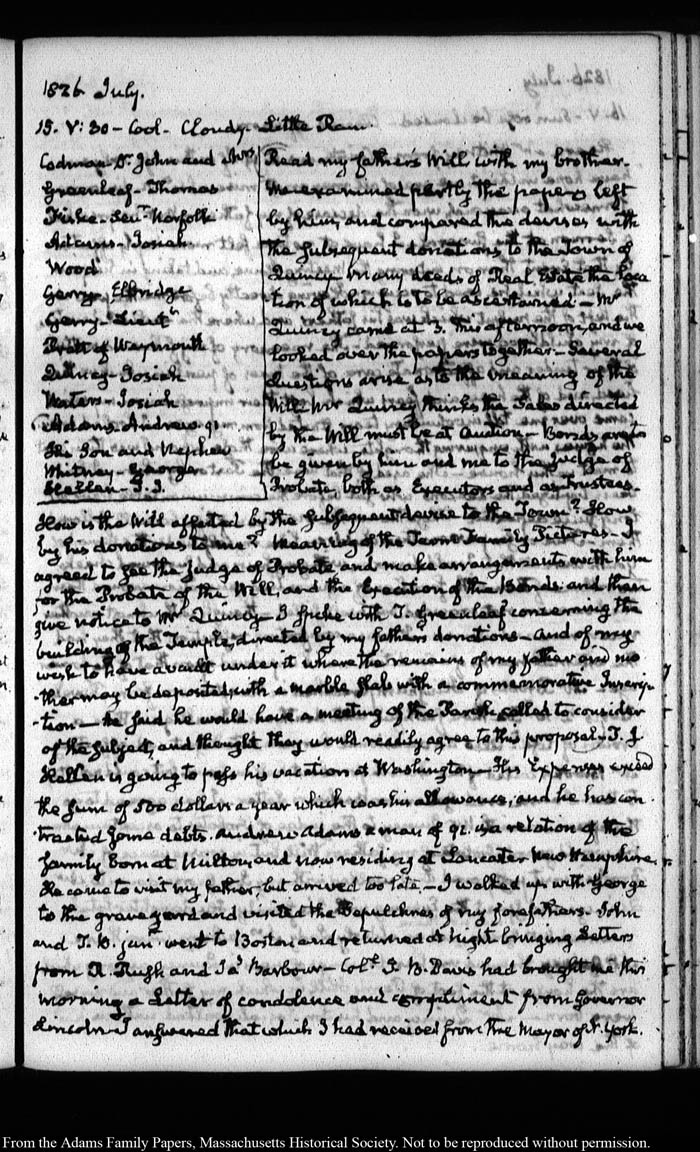 1826 July.
15. V:30 - Cool - Cloudy. Little Rain.
Codman Dr. John and Mrs
Greenleaf - Thomas
Fiske - Norfolk
Adams - Josiah
Wood
Gerry, Elbridge
Gerry - Lieutt
Pratt of Weymouth
Quincy - Josiah
Waters - Josiah
Adams Andrew 91
His Son and Nephew
Whitney - George
Hellen - T. J.
Read my father's Will with my brother.
We examined partly the papers left
by him, and compared the devises with
the subsequent donations to the Town of
Quincy. Many deeds of Real Estate the loca
tion of which is to be ascertained - Mr
Quincy came at 3. this afternoon, and we
looked over the papers together - Several
questions arise as to the meaning of the
Will. Mr Quincy thinks the Sales directed
by the Will must be at Auction - Bonds are to
be given by him and me to the Judge of
Probate, both as Executors and as Trustees -
How is the Will affected by the subsequent devise to the Town? How
by his donations to me? Meaning of the Term Family Pictures - I
agreed to see the Judge of Probate and make arrangements with him
for the Probate of the Will, and the Execution of the Bonds: and then
give notice to Mr Quincy - I spoke with T. Greenleaf concerning the
building of the Temple, directed by my father's donations - and of my
wish to have a vault under it where the remains of my father and mo
-ther may be deposited, with a marble slab with a commemorative Inscrip-
-tion - He said he would have a meeting of the Parish called to consider
of the subject, and thought they would readily agree to this proposal. T. J.
Hellen is going to pass his vacation at Washington - His Expenses exceed
the sum of 500 dollars a year which was his allowance, and he has con
tracted some debts. Andrew Adams a man of 91. is a relation of the
family born at Milton, and now residing at Lancaster New Hampshire.
He came to visit my father, but arrived too late. - I walked up with George
to the graveyard and visited the Sepulchres of my forefathers. John
and T. B. junr went to Boston and returned at Night bringing Letters
from R. Rush and Jas Barbour - Coll J. B. Davis had brought me this
morning a Letter of condolence and compliment from Governor
Lincoln - I answered that which I had received from the Mayor of N. York.
From the Adams Family Papers, Massachusetts Historical Society. Not to be reproduced without permission.